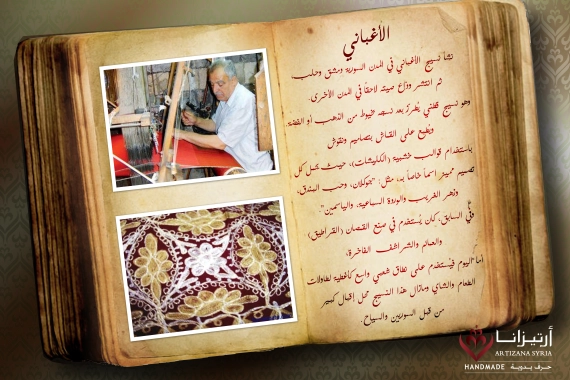 الأغباني
نشأ نسيج الأغباني في المدن السورية دمشق وحلب،
ثم انتشر وذاع صيته لاحقاً في المدن الأخرى.
وهو نسيج قطني يُطرّز بعد نسجه بخيوط من الذهب أو الفضة
ويُطبع على القماش بتصاميم ونقوش
باستخدام قوالب خشبية (الكليشات)، حيث يحمل كل
تصميم مميز اسماً خاصاً به، مثل: وحب الفندق،
وزهر الغريب والوردة السباعية، والياسمين".
وفي السابق، كان يُستخدم في صنع القمصان (القراطق)
والعمائم والشراشف الفاخرة،
أما اليوم فيُستخدم على نطاق شعبي واسع كأغطية لطاولات
الطعام والشاي ومازال هذا النسيج محل إقبال كبير
من قبل السوريين والسياح.
أرتيزانا
ARTIZANA SYRIA
HANDMADE حرف يدوية